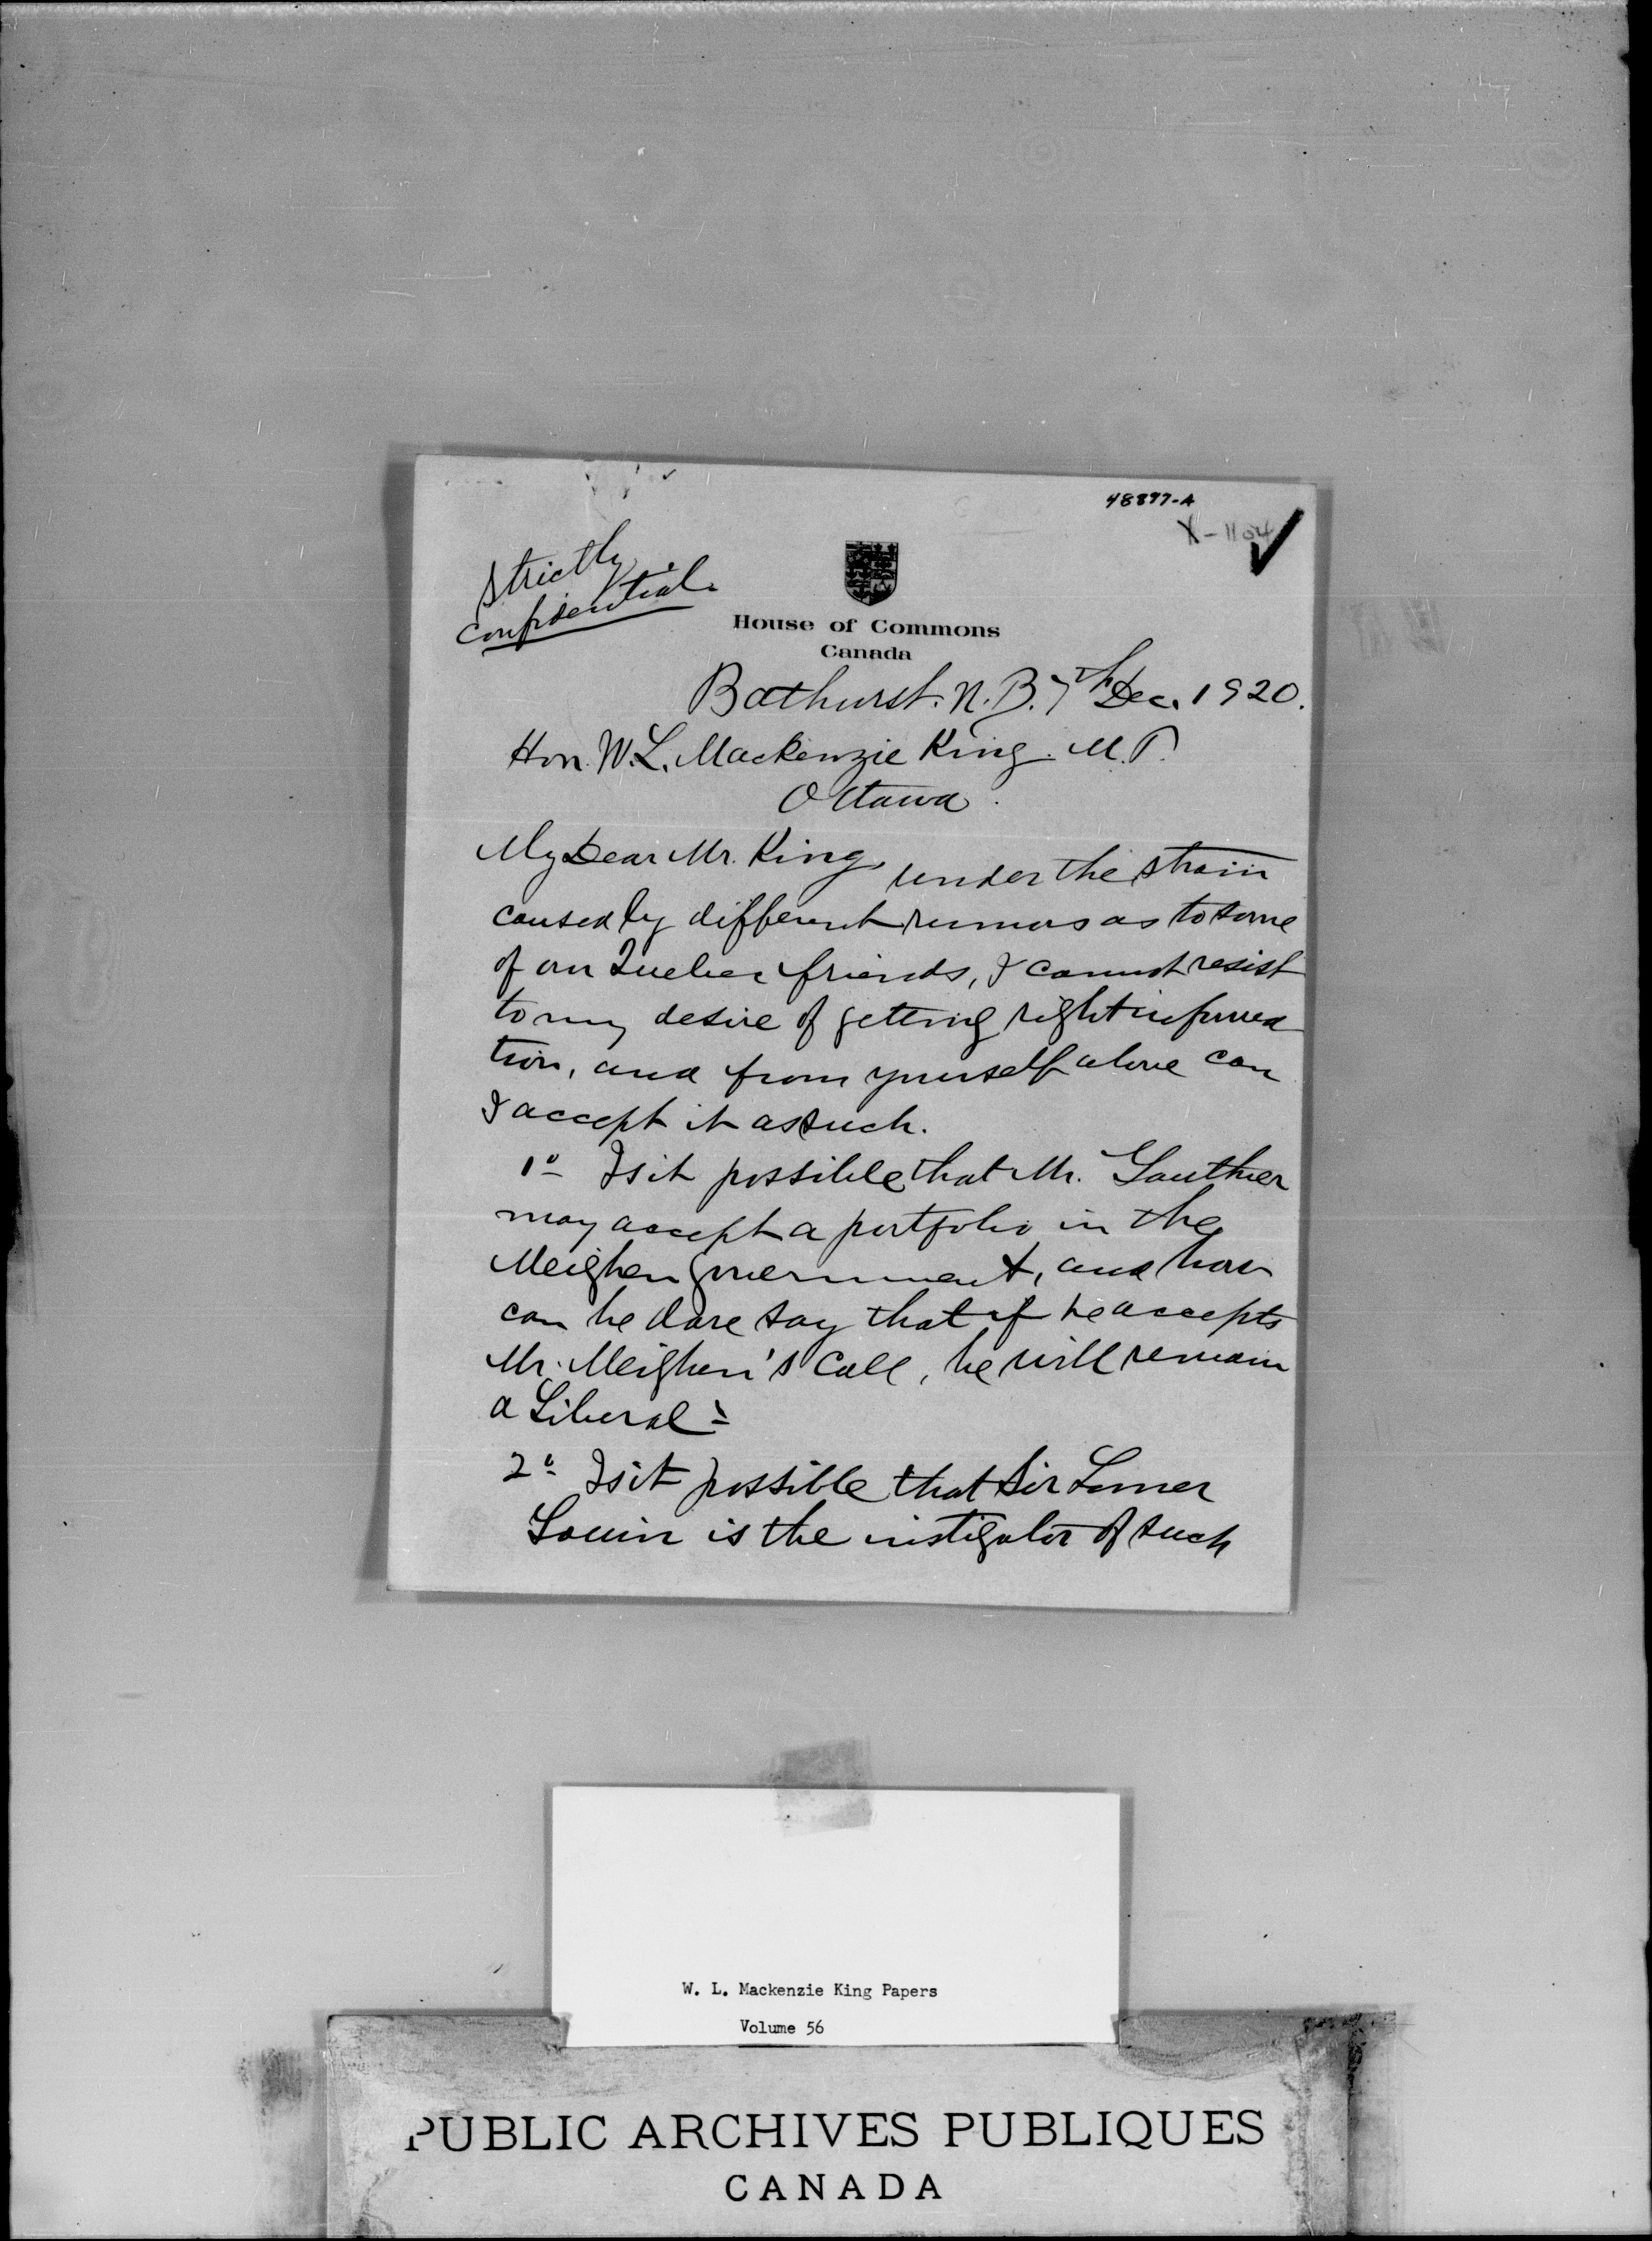 48897-A
X-1104
Strictly
confidential.
House of Commons
Canada
Bathurst. N.B. 7th Dec. 1920.
Hon. W.L. Mackenzie King. M.P.
Ottawa.
My Dear Mr. King,
under the strain
caused by different rumors as to some
of our Quebec friends, I cannot resist
to my desire of getting right informa
tion, and from yourself alone can
I accept it as such.
1º Is it possible that Mr. Gauthier
may accept a portfolio in the
Meighen Government, and how
can he dare say that if he accepts
Mr. Meighen's call, he will remain
a Liberal?
2º Is it possible that Sir Lomer
Gouin is the instigator of such
W. L. Mackenzie King Papers
Volume 56
PUBLIC ARCHIVES PUBLIQUES
CANADA